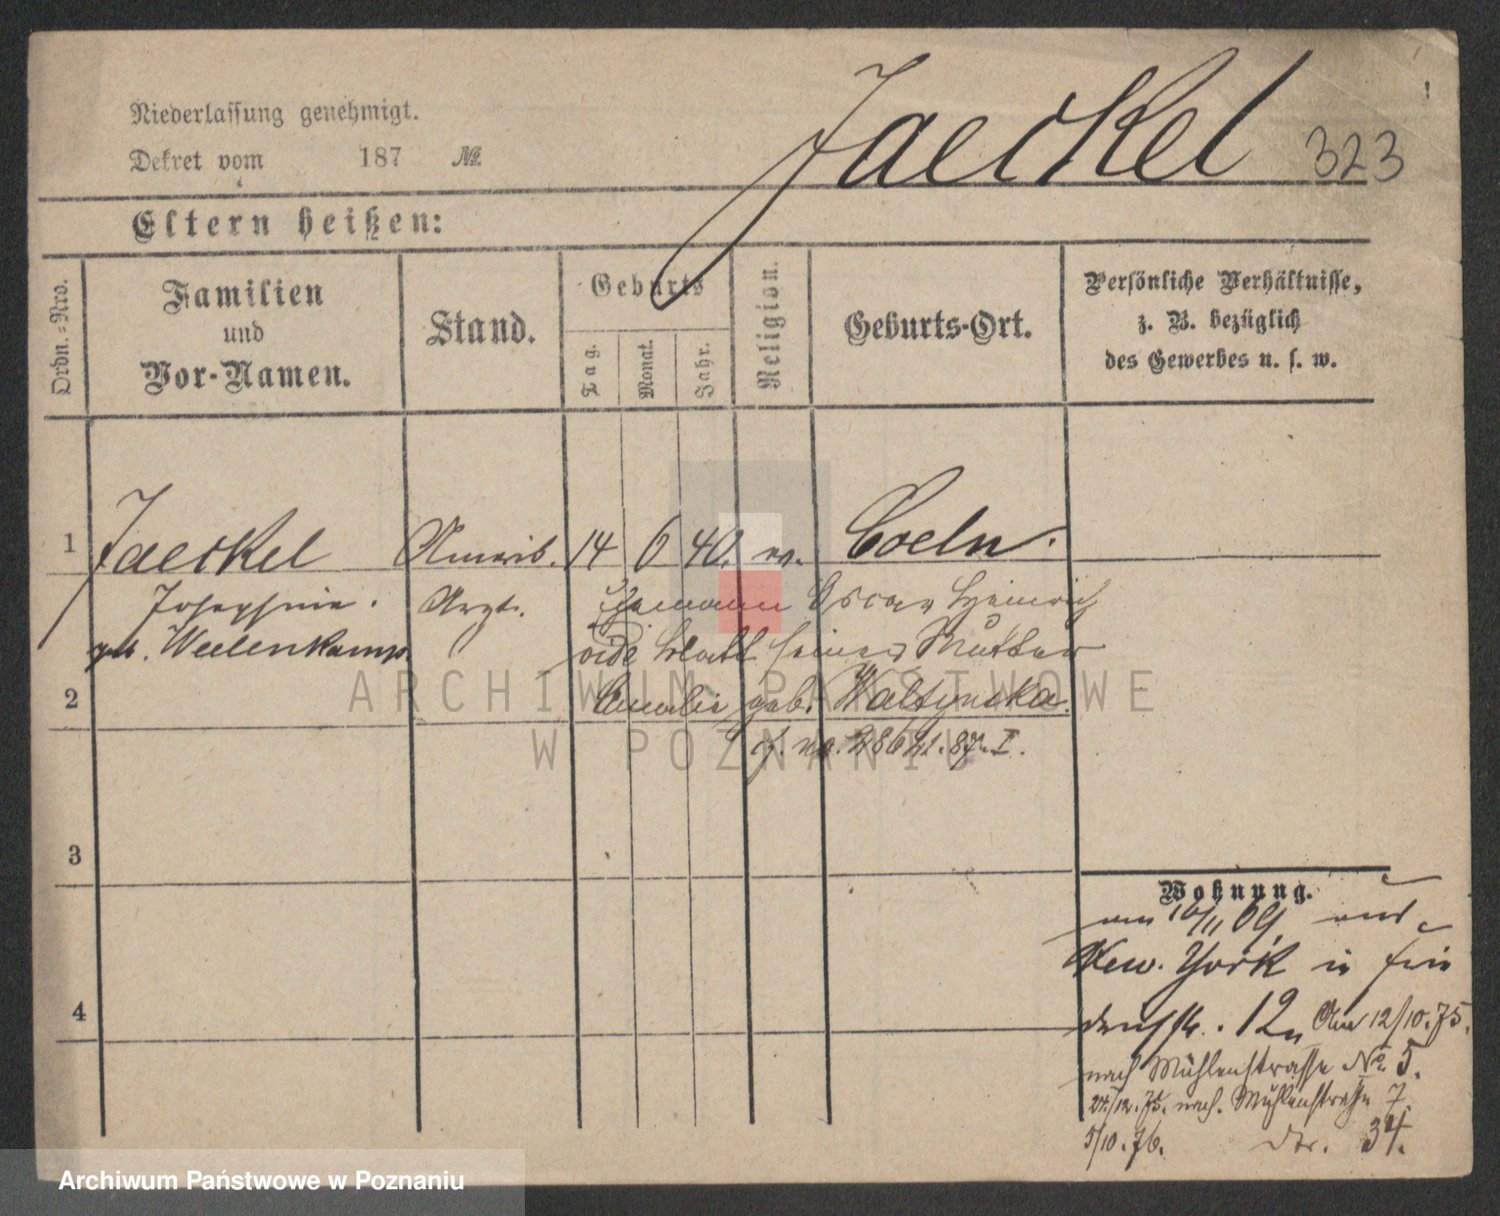 Jaeckel 323
Niederlassung genehmigt.
Dekret vom 187 №
Eltern heißen:
Ordn.=Nro.
Familien
und
Vor-Namen.
Stand.
Geburts
Tag.
Monat.
Jahr.
Religion.
Geburts-Ort.
Persönliche Verhältnisse,
z. B. bezüglich
des Gewerbes u. s. w.
1 Jaeckel Amerik. 14 6 40. ev. Coeln.
Josephine. Arzt. Ehemann Oscar Heinrich
geb. Weelenkamp. vide Blatt seiner Mutter
2 Emilie geb. Waltynska.
3
4
Wohnung.
am 10/11 69. aus
New-York in
12. Am 12/10.75.
nach Mühlenstrasse № 5.
24./12.75. nach. Mühlenstrasse 7.
5/10.76. dto. 34.
ARCHIWUM PAŃSTWOWE
W POZNANIU
Archiwum Państwowe w Poznaniu